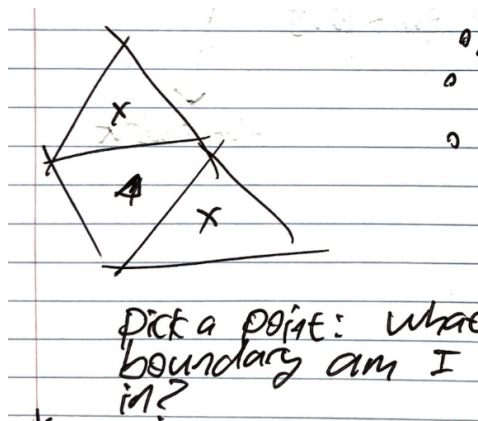 x
4
x
pick a point: what
boundary am I
in?